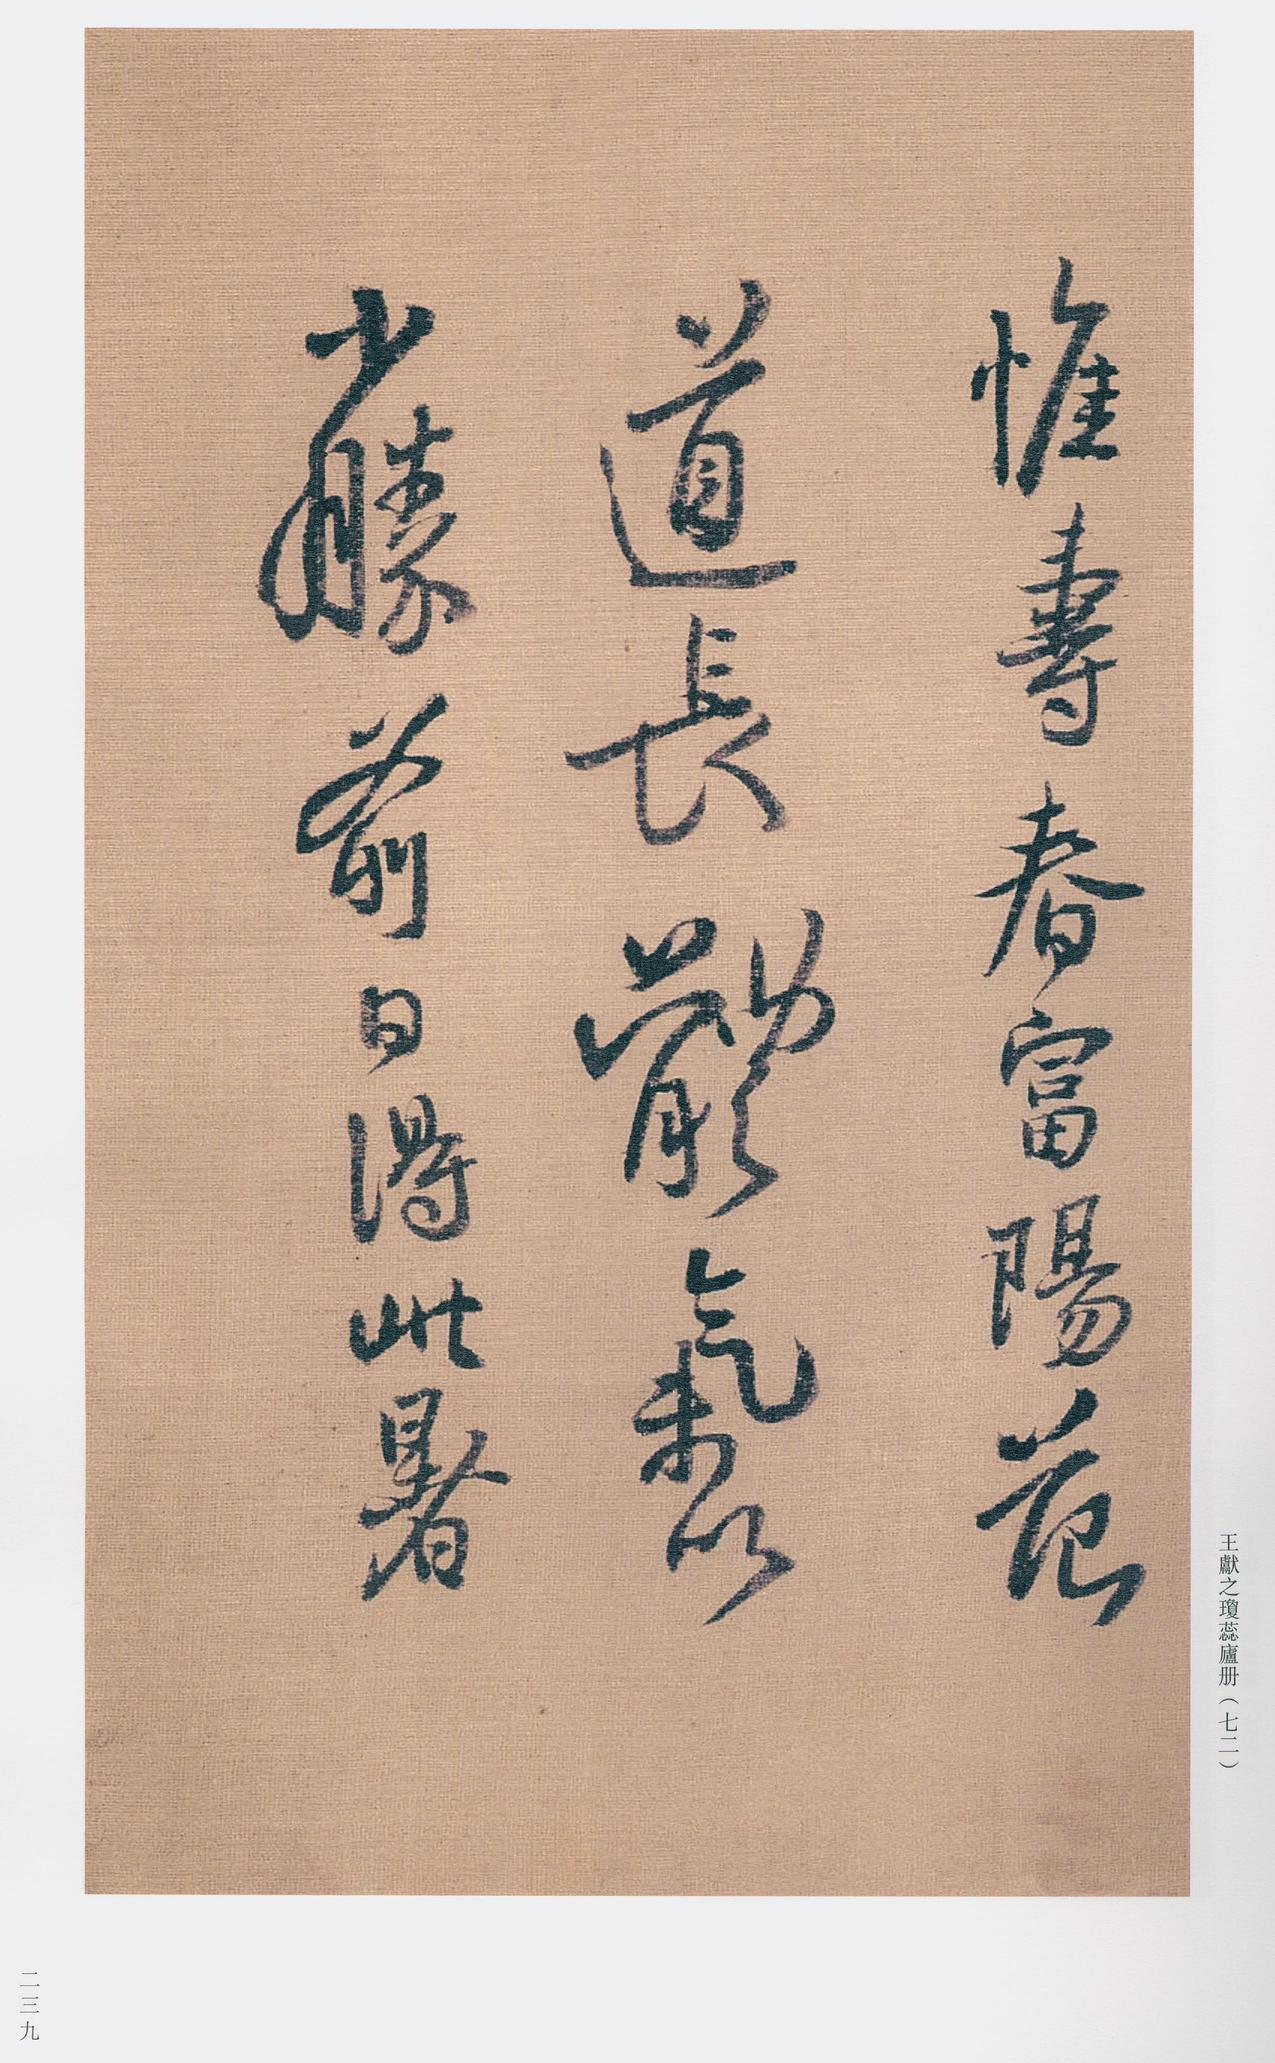 惟壽春富陽范
道長氣以
少勝前日得此暑
王獻之瓊蕊廬册（七二）
二三九